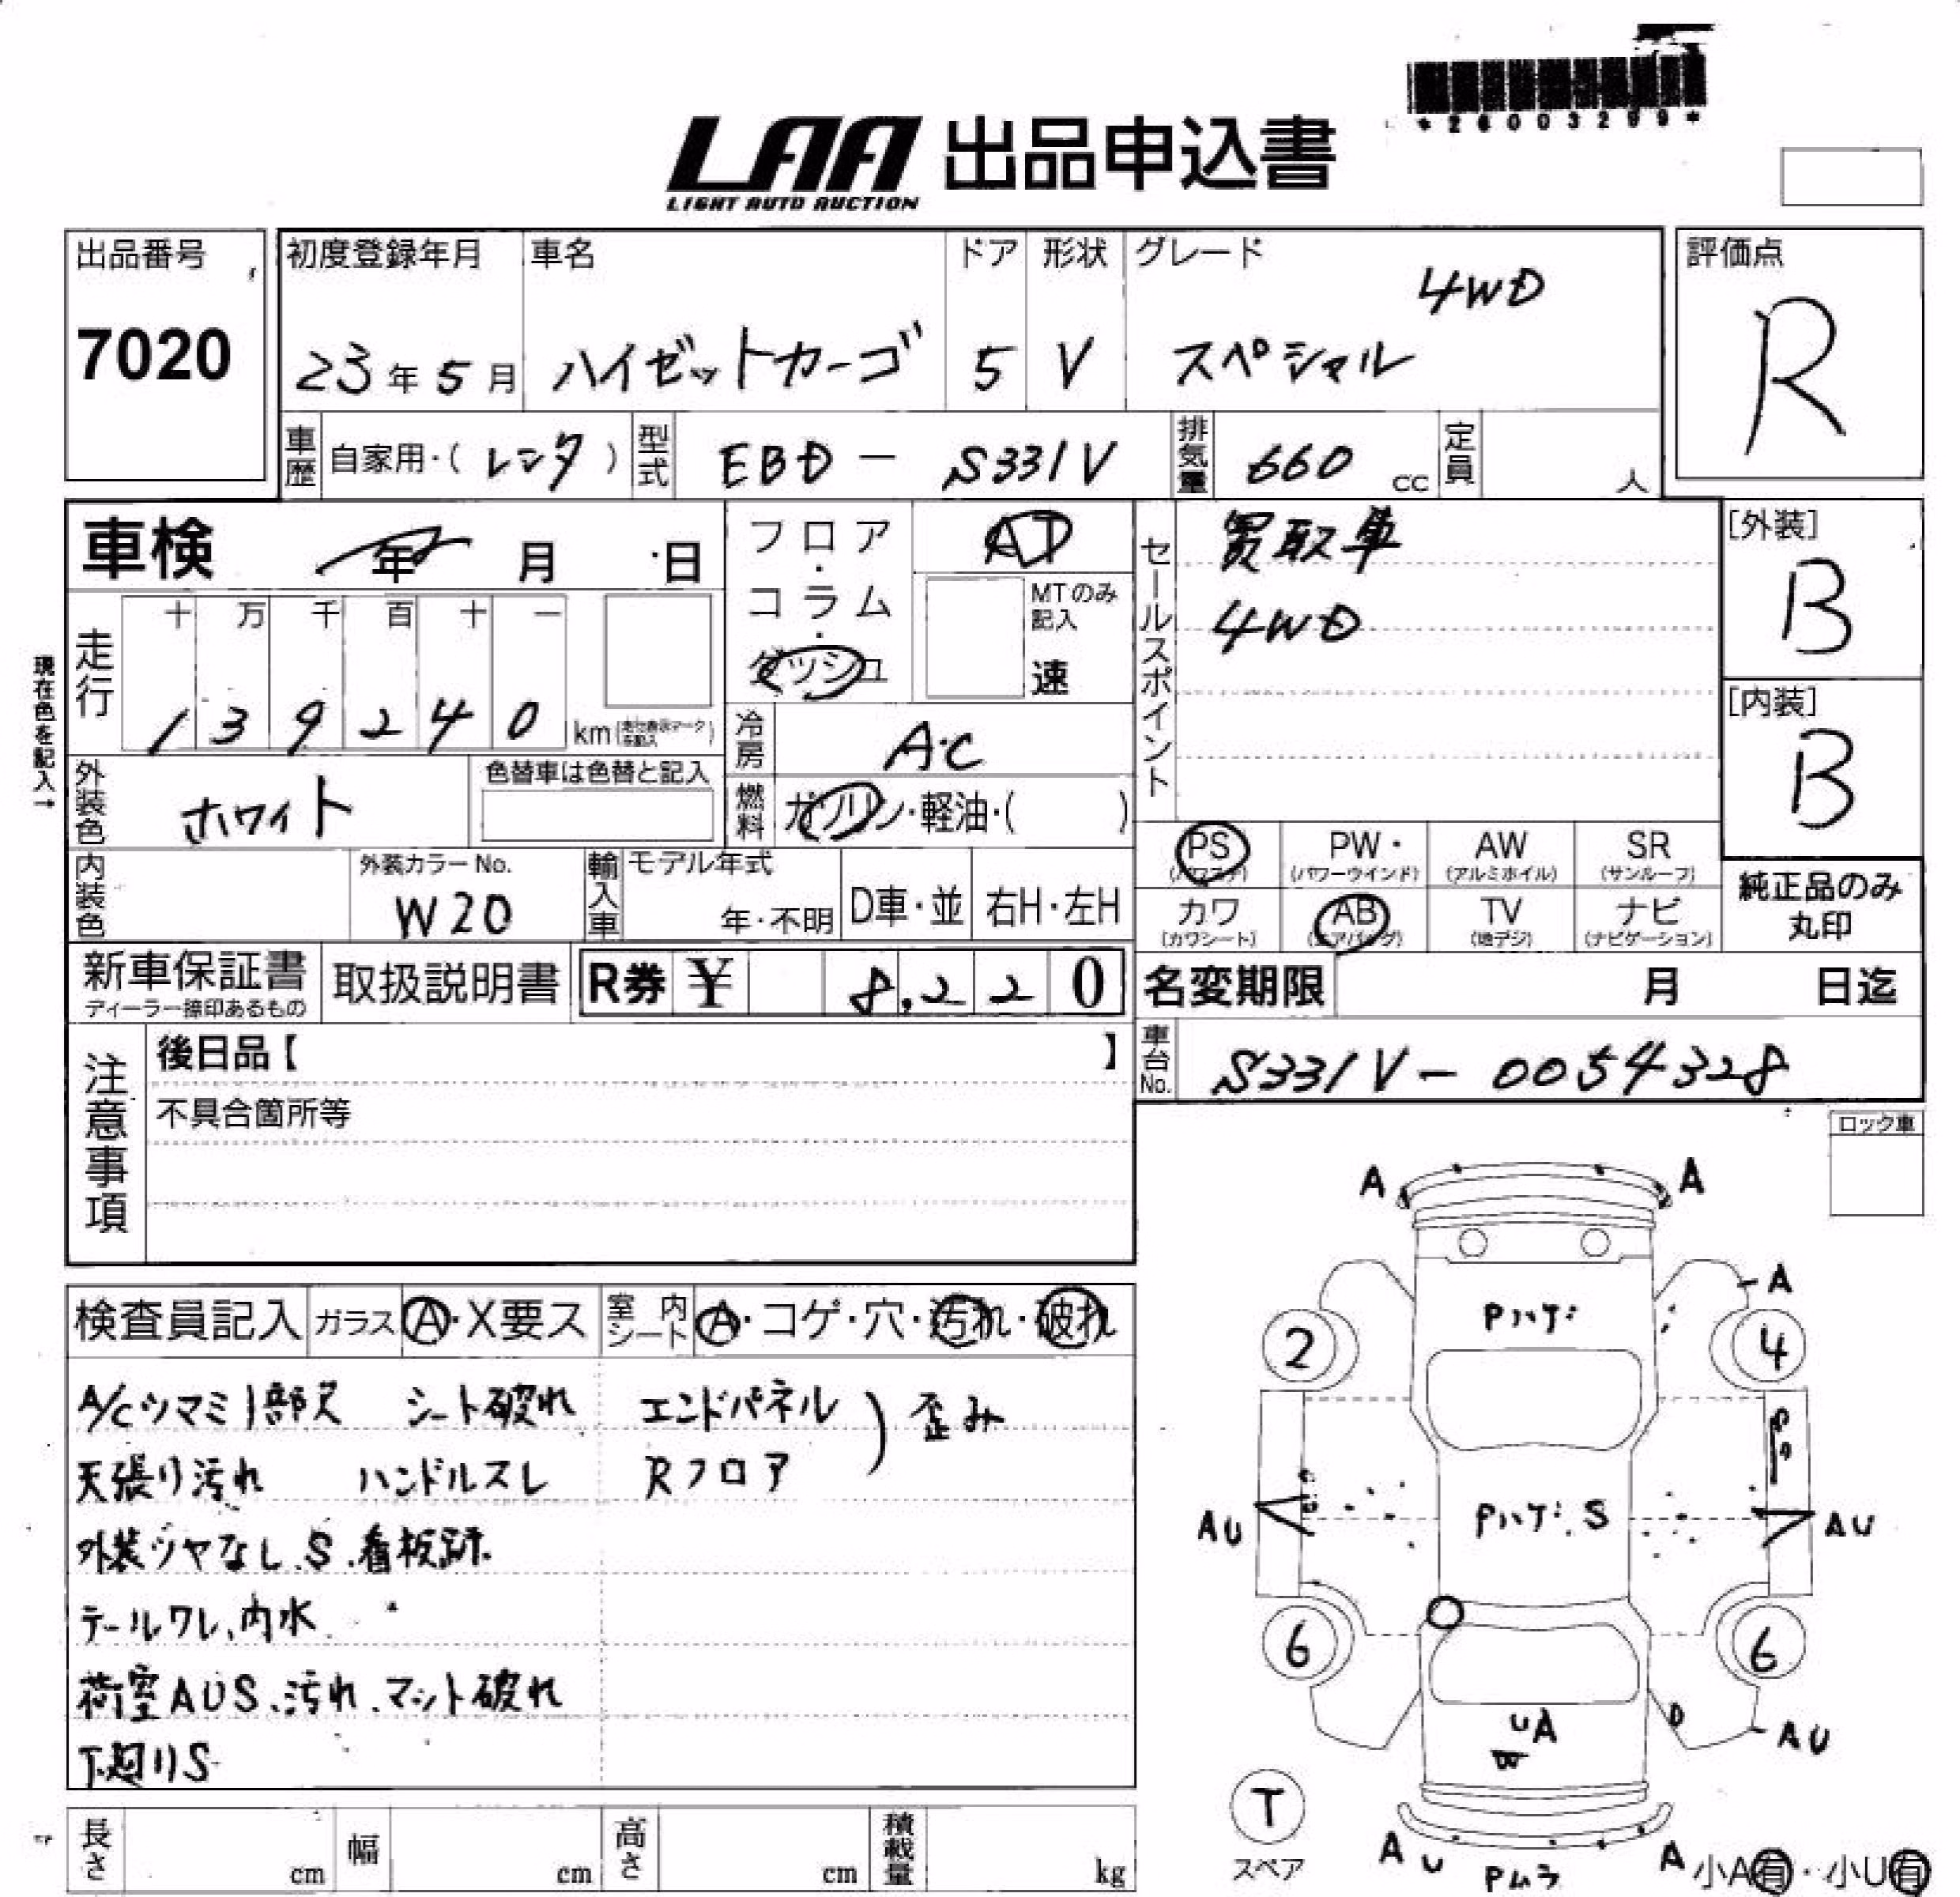 *26003299*
LAA 出品申込書
LIGHT AUTO AUCTION
出品番号
7020
初度登録年月
23年5月
車名
ハイゼットカーゴ
ドア
5
形状
V
グレード
4WD
スペシャル
評価点
R
車歴
自家用・(レンタ)
型式
EBD - S331V
排気量
660 cc
定員
人
車検
年 月 日
走行
十 万 千 百 十 一
1 3 9 2 4 0 km
現在色を記入→
フロア・コラム・ダッシュ
AT
MTのみ記入
速
冷房
AC
燃料
ガソリン・軽油・( )
外装色
ホワイト
色替車は色替と記入
内装色
外装カラーNo.
W20
輸入車
モデル年式
年・不明
D車・並
右H・左H
セールスポイント
買取車
4WD
[外装]
B
[内装]
B
PS
(パワステ)
PW
(パワーウインド)
AW
(アルミホイル)
SR
(サンルーフ)
カワ
(カワシート)
AB
(エアバッグ)
TV
(地デジ)
ナビ
(ナビゲーション)
純正品のみ
丸印
新車保証書
ディーラー捺印あるもの
取扱説明書
R券 ¥ 8,220
名変期限
月 日迄
車台No.
S331V-0054328
注意事項
後日品【 】
不具合箇所等
ロック車
検査員記入
ガラス
A・X要ス
室内シート
A・コゲ・穴・汚れ・破れ
A/Cツマミ1部欠 シート破れ エンドパネル ) 歪み
天張り汚れ ハンドルスレ Rフロア
外装ツヤなし、S、看板跡
テールワレ、内水
荷室AUS、汚れ、マット破れ
下廻りS
A A
A
Pハゲ
2 4
AU Pハゲ、S AU
6 6
UA
AU
T
スペア
A U Pムラ A
小A有・小U有
長さ cm
幅 cm
高さ cm
積載量 kg